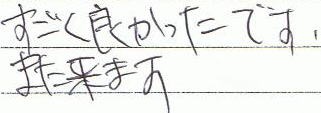 すごく良かったです.
また来ます